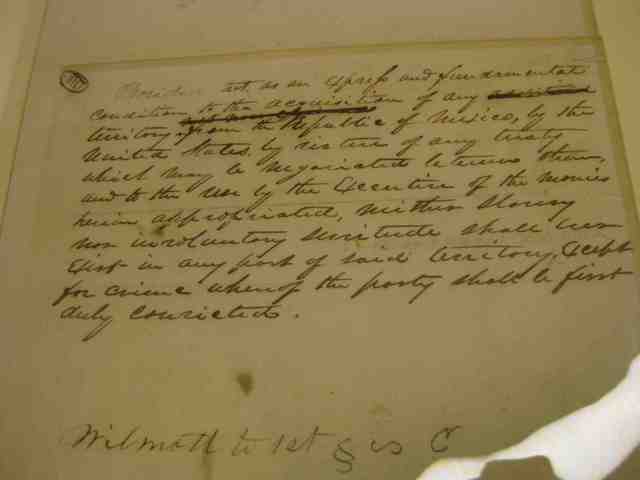 Provided that as an express and fundamental
condition to the acquisition of any
territory from the Republic of Mexico, by the
United States, by virtue of any treaty
which may be negociated between them,
and to the use by the Executive of the monies
herein appropriated, neither slavery
nor involuntary servitude shall ever
exist in any part of said territory, except
for crime whereof the party shall be first
duly convicted.
Wilmot to 1st §